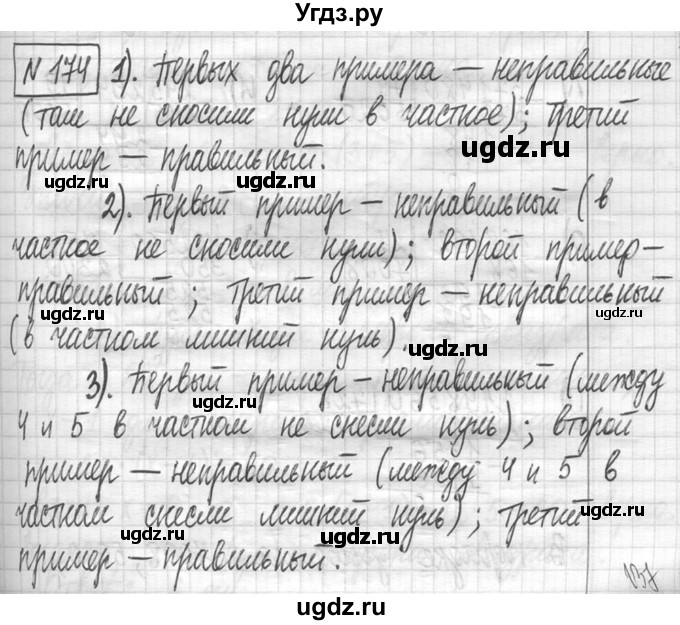 Угдз.ру
№ 174 1). Первых два примера — неправильные
(там не сносили нули в частное); третий
пример — правильный.
2). Первый пример — неправильный (в
частное не сносили нули); второй пример —
правильный; третий пример — неправильный
(в частном лишний нуль).
3). Первый пример — неправильный (между
4 и 5 в частном не снесли нуль); второй
пример — неправильный (между 4 и 5 в
частном снесли лишний нуль); третий
пример — правильный.
137
ugdz.ru
ugdz.ru
ugdz.ru
ugdz.ru
ugdz.ru
ugdz.ru
ugdz.ru
ugdz.ru
ugdz.ru
ugdz.ru
ugdz.ru
ugdz.ru
ugdz.ru